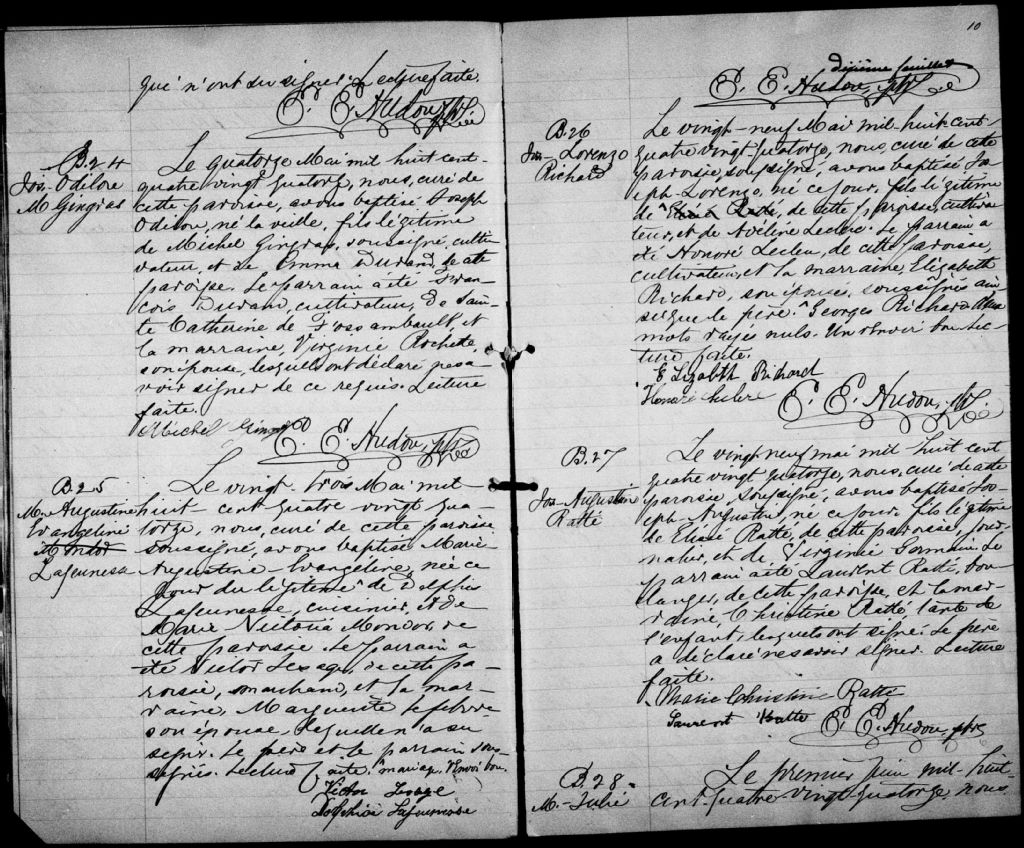 qui n'ont su signer. Lecture faite.
E. E. Hudon, ptre
B. 24
Jos- Odilon
M Gingras
Le quatorze Mai mil huit cent-
quatre vingt quatorze, nous, curé de
cette paroisse, avons baptisé Joseph
Odilon, né la veille, fils légitime
de Michel Gingras, soussigné, culti
vateur, et de Emma Durand, de cette
paroisse. Le parrain a été Fran
çois Durand, cultivateur, de Sain-
te Catherine de Fossambault, et
la marraine, Virginie Rochette,
son épouse, lesquels ont déclaré ne sa-
voir signer de ce requis. Lecture
faite.
Michel Gingras
E. E. Hudon, ptre
B. 25
M. Augustine
Evangeline
Lajeunesse
Le vingt trois Mai mil-
huit- cent quatre vingt qua
torze, nous, curé de cette paroisse
soussigné, avons baptisé Marie-
Augustine- Evangeline, née ce
jour du légitime de Dolphis
Lajeunesse, cuisinier, et de
Marie Victoria Mondor, de
cette paroisse. Le parrain a
été Victor Lesage, de cette pa-
roisse, marchand, et la mar-
raine, Marguerite Lefebvre
son épouse, laquelle n'a su
signer. Le père et le parrain sous-
signés. Lecture faite. mariage. Renvoi bon.
Victor Lesage
Dolphice Lajeunesse
10
dixième feuillet
E. E. Hudon, ptre
B. 26
Jos- Lorenzo
Richard
Le vingt-neuf Mai mil-huit-cent-
quatre vingt-quatorze, nous, curé de cette
paroisse, soussigné, avons baptisé Jo
seph-Lorenzo, né ce jour, fils légitime
de Elisée Ratté, de cette paroisse, cultiva
teur, et de Avéline Leclerc. Le parrain a
été Honoré Leclerc, de cette paroisse,
cultivateur, et la marraine, Elizabeth
Richard, son épouse, soussignés ain
si que le père. Georges Richard Deux
mots rayés nuls. Un renvoi bon. Lec-
ture faite.
Elizabith Richard
Honoré Leclerc
E. E. Hudon, ptre
B. 27
Jos- Augustin
Ratté
Le vingt neuf mai mil- huit cent
quatre vingt quatorze, nous, curé de cette
paroisse, soussigné, avons baptisé Jos
eph- Augustin, né ce jour, fils légitime
de Elisée Ratté, de cette paroisse, jour-
nalier, et de Virginie Germain. Le
parrain a été Laurent Ratté, bou
langer, de cette paroisse, et la mar-
raine, Christine Ratté tante de
l'enfant, lesquels ont signé. Le père
a déclaré ne savoir signer. Lecture
faite.
Marie Christine Ratté
Laurent Ratte
E. E. Hudon, ptre
B. 28
M. Julie
Le premier Juin mil-huit-
cent-quatre vingt-quatorze, nous,